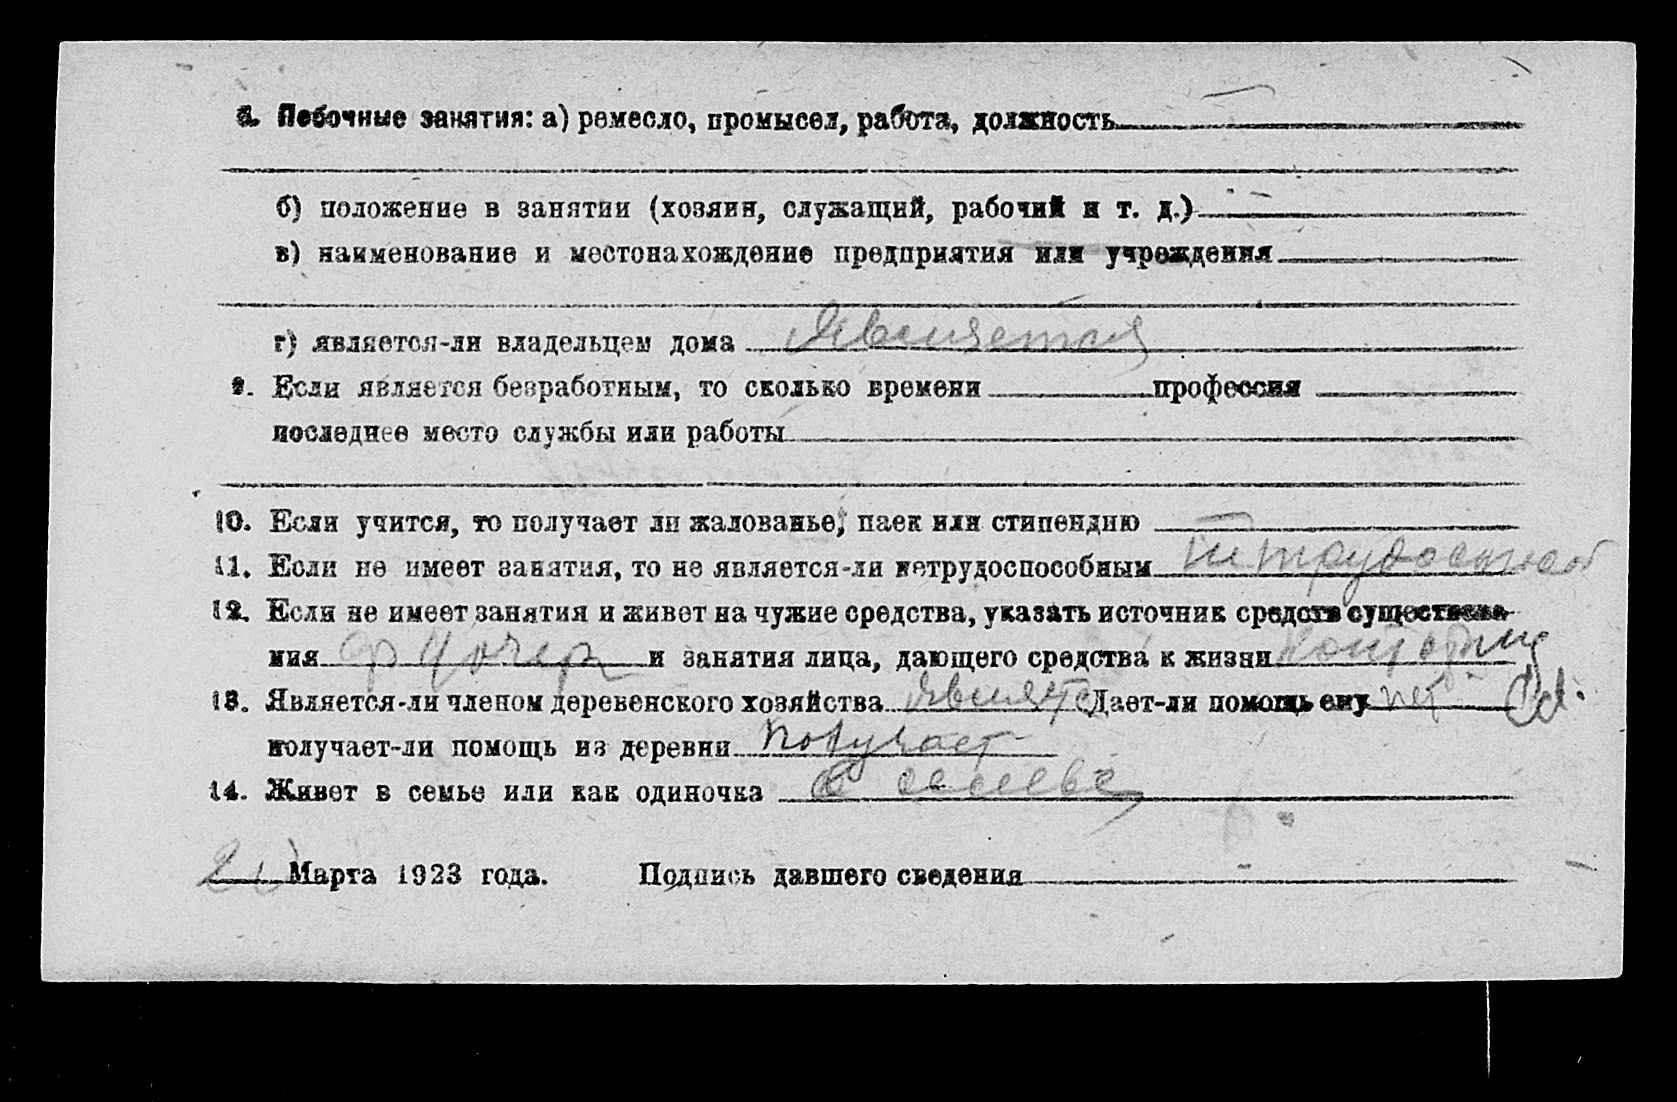 8. Побочные занятия: а) ремесло, промысел, работа, должность —
б) положение в занятии (хозяин, служащий, рабочий и т. д.) —
в) наименование и местонахождение предприятия или учреждения
г) является-ли владельцем дома Является
9. Если является безработным, то сколько времени профессия
последнее место службы или работы
10. Если учится, то получает ли жалованье, паек или стипендию —
11. Если не имеет занятия, то не является-ли нетрудоспособным нетрудоспособ
12. Если не имеет занятия и живет на чужие средства, указать источник средств существова-
ния и занятия лица, дающего средства к жизни
13. Является-ли членом деревенского хозяйства является Дает-ли помощь ему нет
получает-ли помощь из деревни получает
14. Живет в семье или как одиночка в семье
Марта 1923 года. Подпись давшего сведения —